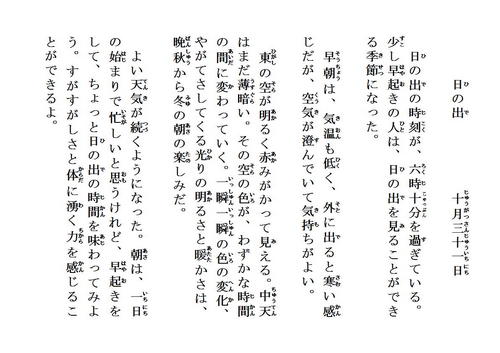 日の出　十月三十一日
日の出の時刻が、六時十分を過ぎている。
少し早起きの人は、日の出を見ることができ
る季節になった。
早朝は、気温も低く、外に出ると寒い感
じだが、空気が澄んでいて気持ちがよい。
東の空が明るく赤みがかって見える。中天
はまだ薄暗い。その空の色が、わずかな時間
の間に変わっていく。一瞬一瞬の色の変化、
やがてさしてくる光りの明るさと暖かさは、
晩秋から冬の朝の楽しみだ。
よい天気が続くようになった。朝は、一日
の始まりで忙しいと思うけれど、早起きを
して、ちょっと日の出の時間を味わってみよ
う。すがすがしさと体に湧く力を感じるこ
とができるよ。